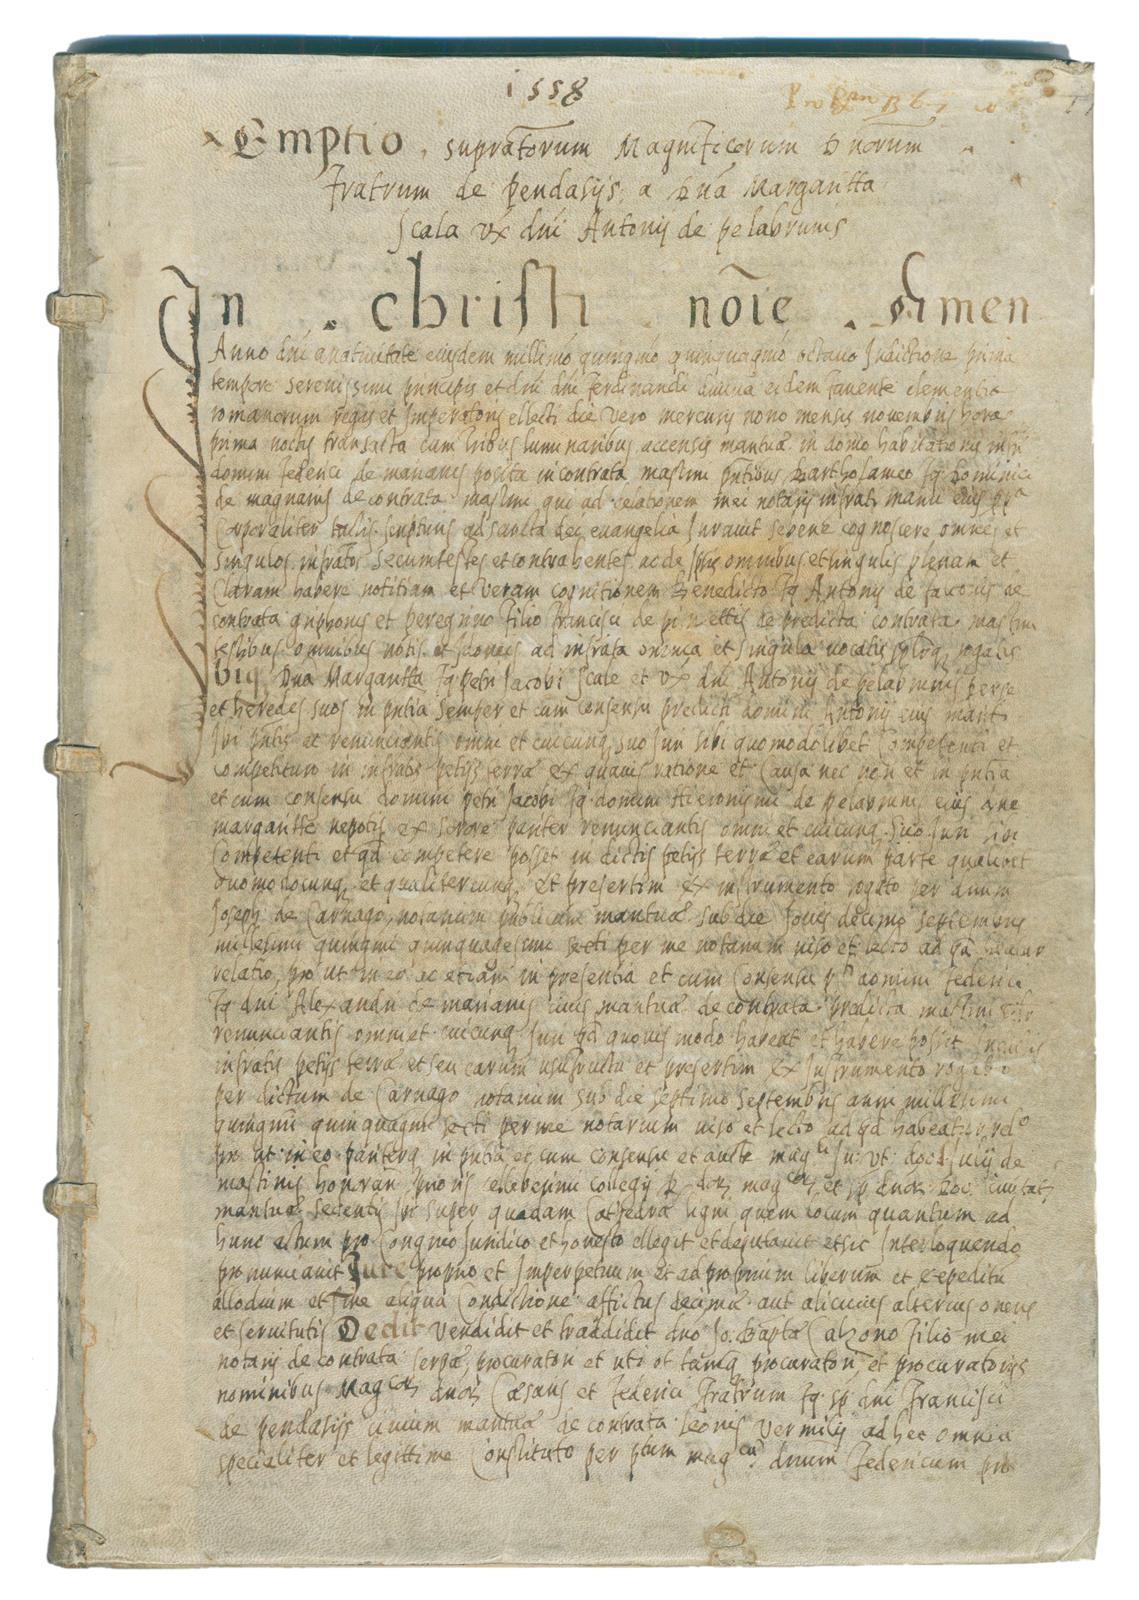 1558
Emptio, supratorum Magnificorum D norum
fratrum de pendasijs, a Dna Margaritta
Scala ux dni Antonij de pelabrunis
In christi noie Amen
Anno dni a nativitate eiusdem millimo quingmo quinquagmo octavo Indictione prima
tempore Serenissimi principis et dni dni Ferdinandi divina eidem favente clementia
romanorum regis et Imperatoris ellecti die vero mercurij nono mensis novembris hora
prima noctis transacta cum tribus luminaribus accensis mantuæ in domo habitationis
domini federici de marianis posita in contrata mastini pntibus Bartholameo fq Dominici
de magnanis de contrata mastini qui ad delationem mei notarij infrati manu
Corporaliter tactis scripturis ad sancta dei evangelia Juravit se bene cognoscere omnes et
Singulos infratos Secum testes et contrahentes ac de ipsis omnibus et singulis plenam et
Claram habere notitiam et veram cognitionem Benedicto fq Antonij de de
contrata griphonis et peregrino filio francisci de de predicta contrata mastini
testibus omnibus notis et idoneis ad infrata omnia et singula vocatis rogatis
Ibiq Dna Margaritta fq petri Jacobi Scale et ux dni Antonij de pelabrunis per se
et heredes suos in pntia semper et cum consensu predicti domini Antonij eius mariti
ibi pntis et renunciantis omni et cuicunq suo Juri sibi quomodolibet Competenti et
Competituro in infratis petijs terræ ex quavis ratione et Causa nec non et in pntia
et cum consensu domini petri Jacobi fq domini Hieronimi de pelabrunis eius dne
margaritte nepotis ex sorore pariter renunciantis omni et cuicunq suo Juri sibi
Competenti et qd competere posset in dictis petijs terræ et earum parte qualibet
quomodocunq et qualitercunq et presertim ex instrumento rogato per dnum
Joseph de Carnago notarium publicum mantuæ sub die Jovis decimo septembris
millesimi quingmi quinquagesimi sexti per me notarium viso et lecto ad qd
relatio, pro ut in eo ac etiam in presentia et cum Consensu domini federici
fq dni Alexandri de marianis civis mantuæ de contrata predicta mastini
renunciantis omni et cuicunq Juri qd quovis modo habeat et habere possit
infratis petijs terræ et seu earum usufructu et presertim ex Instrumento rogato
per dictum de Carnago notarium sub die septimo septembris anni millesimi
quingmi quinquagmi sexti per me notarium viso et lecto ad qd habeatur relo
pro ut in eo pariterq in pntia et cum consensu et aucte magci Ju: ut: doct Julij de
mastinis honoran prioris celeberimi collegij
mantuæ Sedentis sup super quadam Cathedra ligni quem locum quantum ad
hunc actum pro Congruo Juridico et honesto ellegit et deputavit et sic Interloquendo
pronunciavit Jure proprio et Imperpetuum et ad proprium liberum et expeditu
allodium et sine aliqua Condictione affictus decimæ aut alicuius alterius oneris
et servitutis Dedit Vendidit et tradidit dno Jo. Bapta Calzono filio mei
notarij de contrata Serpæ, procuratori et uti et tanq procuratori, et procuratorijs
nominibus Magcor dnor Cæsaris et Federici fratrum fq sp dni Francisci
de pendasijs civium mantuæ de contrata leonis Vermilij ad hec omnia
specialiter et legittime Constituto per ptum magcu dnum Federicum